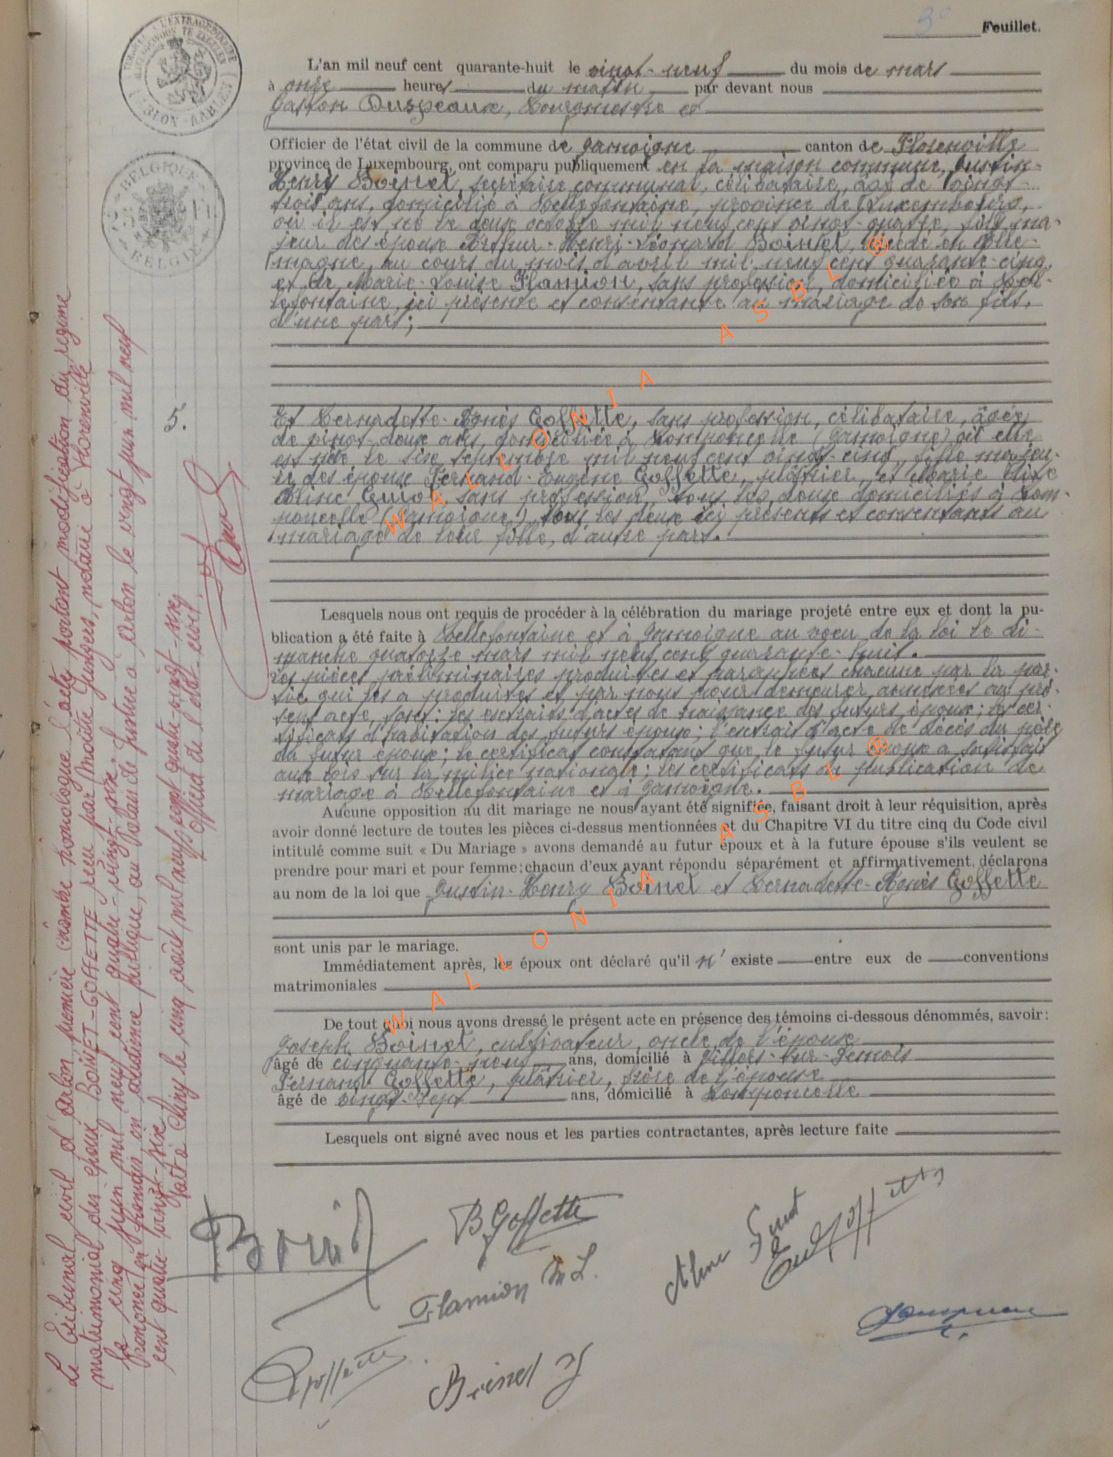 3e Feuillet.
L'an mil neuf cent quarante-huit le vingt-neuf du mois de mars
à onze heures du matin par devant nous
Gaston Bourgmestre et
Officier de l'état civil de la commune de Jamoigne canton de Florenville
province de Luxembourg, ont comparu publiquement en la maison commune, Justin-
Henry Boinet, secrétaire communal, célibataire, âgé de vingt-
trois ans, domicilié à Bellefontaine, province de Luxembourg,
où il est né le douze octobre mil neuf cent vingt-quatre, fils ma-
jeur des époux Arthur-Henri-Léonard Boinet, décédé en Alle-
magne, au cours du mois d'avril mil neuf cent quarante-cinq
et de Marie-Louise Flamion, sans profession, domiciliée à Bel-
lefontaine, ici présente et consentante au mariage de son fils,
d'une part;
5.
Et Bernadette-Agnès Goffette, sans profession, célibataire, âgée
de vingt-deux ans, domiciliée à Romponcelle (Jamoigne) où elle
est née le six septembre mil neuf cent vingt-cinq, fille majeu-
re des époux Fernand-Eugène Goffette, plâtrier, et Marie Elise
Aline Guiot sans profession, tous les deux domiciliés à Rom-
poncelle (Jamoigne), tous les deux ici présents et consentants au
mariage de leur fille, d'autre part.
Lesquels nous ont requis de procéder à la célébration du mariage projeté entre eux et dont la pu-
blication a été faite à Bellefontaine et à Jamoigne au vœu de la loi le di-
manche quatorze mars mil neuf cent quarante-huit.
Les pièces préliminaires produites et paraphées chacune par la par-
tie qui les a produites et par nous pour demeurer annexées au pré-
sent acte, sont: les extraits d'actes de naissance des futurs époux; les cer-
tificats d'habitation des futurs époux; l'extrait d'acte de décès du père
du futur époux; le certificat constatant que le futur époux a satisfait
aux lois sur la milice nationale; les certificats de publication de
mariage à Bellefontaine et à Jamoigne.
Aucune opposition au dit mariage ne nous ayant été signifiée, faisant droit à leur réquisition, après
avoir donné lecture de toutes les pièces ci-dessus mentionnées et du Chapitre VI du titre cinq du Code civil
intitulé comme suit « Du Mariage » avons demandé au futur époux et à la future épouse s'ils veulent se
prendre pour mari et pour femme; chacun d'eux ayant répondu séparément et affirmativement, déclarons
au nom de la loi que Justin-Henry Boinet et Bernadette-Agnès Goffette
sont unis par le mariage.
Immédiatement après, les époux ont déclaré qu'il n'existe entre eux de conventions
matrimoniales
De tout quoi nous avons dressé le présent acte en présence des témoins ci-dessous dénommés, savoir:
Joseph Boinet, cultivateur, oncle de l'époux
âgé de cinquante-neuf ans, domicilié à Villers-sur-Semois
Fernand Goffette, plâtrier, frère de l'épouse
âgé de vingt-sept ans, domicilié à Romponcelle
Lesquels ont signé avec nous et les parties contractantes, après lecture faite
Boinet
B. Goffette
Flamion M L.
Aline Guiot
Goffette
Goffette
Boinet J
Le Tribunal civil d'Arlon première chambre homologue l'acte portant modification du régime
matrimonial des époux BOINET-GOFFETTE reçu par Maître Jungers, notaire à Florenville
le cinq juin mil neuf cent quatre-vingt-six.
Prononcé en français en audience publique, au Palais de Justice à Arlon le vingt juin mil neuf
cent quatre vingt-six
fait à Chiny le cinq août mil neuf cent quatre-vingt-six
Officier de l'état civil,
BELGIQUE
BELGIE
WALLONIA ASBL ®
WALLONIA ASBL ®